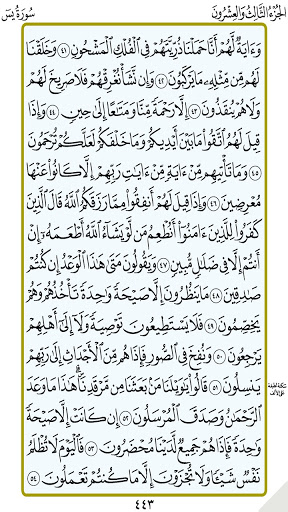 الجزء الثالث والعشرون سورة يس
وَءَايَةٌ لَّهُمْ أَنَّا حَمَلْنَا ذُرِّيَّتَهُمْ فِي الْفُلْكِ الْمَشْحُونِ ٤١ وَخَلَقْنَا
لَهُم مِّن مِّثْلِهِ مَا يَرْكَبُونَ ٤٢ وَإِن نَّشَأْ نُغْرِقْهُمْ فَلَا صَرِيخَ لَهُمْ
وَلَا هُمْ يُنقَذُونَ ٤٣ إِلَّا رَحْمَةً مِّنَّا وَمَتَاعًا إِلَىٰ حِينٍ ٤٤ وَإِذَا
قِيلَ لَهُمُ اتَّقُوا مَا بَيْنَ أَيْدِيكُمْ وَمَا خَلْفَكُمْ لَعَلَّكُمْ تُرْحَمُونَ
٤٥ وَمَا تَأْتِيهِم مِّنْ ءَايَةٍ مِّنْ ءَايَاتِ رَبِّهِمْ إِلَّا كَانُوا عَنْهَا
مُعْرِضِينَ ٤٦ وَإِذَا قِيلَ لَهُمْ أَنفِقُوا مِمَّا رَزَقَكُمُ اللَّهُ قَالَ الَّذِينَ
كَفَرُوا لِلَّذِينَ ءَامَنُوا أَنُطْعِمُ مَن لَّوْ يَشَاءُ اللَّهُ أَطْعَمَهُ إِنْ
أَنتُمْ إِلَّا فِي ضَلَالٍ مُّبِينٍ ٤٧ وَيَقُولُونَ مَتَىٰ هَٰذَا الْوَعْدُ إِن كُنتُمْ
صَادِقِينَ ٤٨ مَا يَنظُرُونَ إِلَّا صَيْحَةً وَاحِدَةً تَأْخُذُهُمْ وَهُمْ
يَخِصِّمُونَ ٤٩ فَلَا يَسْتَطِيعُونَ تَوْصِيَةً وَلَا إِلَىٰ أَهْلِهِمْ
يَرْجِعُونَ ٥٠ وَنُفِخَ فِي الصُّورِ فَإِذَا هُم مِّنَ الْأَجْدَاثِ إِلَىٰ رَبِّهِمْ
يَنسِلُونَ ٥١ قَالُوا يَاوَيْلَنَا مَن بَعَثَنَا مِن مَّرْقَدِنَا ۜ هَٰذَا مَا وَعَدَ
الرَّحْمَٰنُ وَصَدَقَ الْمُرْسَلُونَ ٥٢ إِن كَانَتْ إِلَّا صَيْحَةً
وَاحِدَةً فَإِذَا هُمْ جَمِيعٌ لَّدَيْنَا مُحْضَرُونَ ٥٣ فَالْيَوْمَ لَا تُظْلَمُ
نَفْسٌ شَيْئًا وَلَا تُجْزَوْنَ إِلَّا مَا كُنتُمْ تَعْمَلُونَ ٥٤
٤٤٣